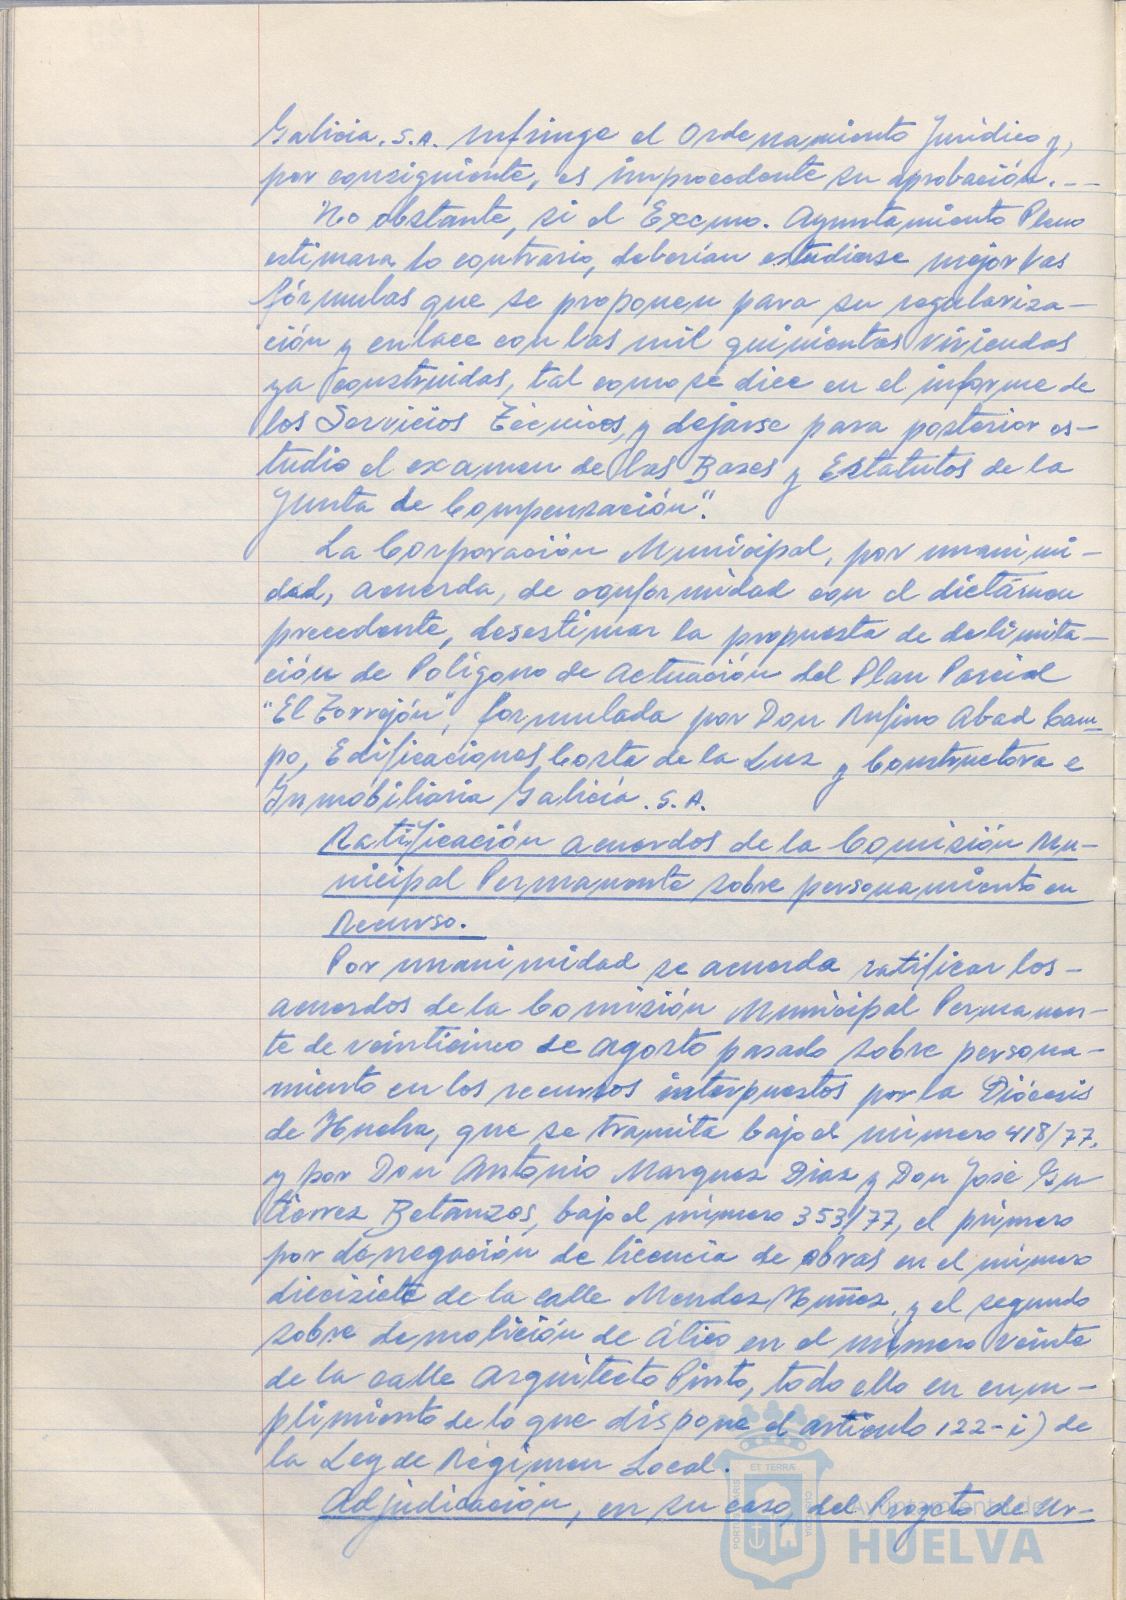 Galicia. S.A. infringe el Ordenamiento Jurídico y,
por consiguiente, es improcedente su aprobación. --
No obstante, si el Excmo. Ayuntamiento Pleno
estimara lo contrario, deberían estudiarse mejor las
fórmulas que se proponen para su regulariza-
ción y enlace con las mil quinientas viviendas
ya construidas, tal como se dice en el informe de
los Servicios Técnicos, y dejarse para posterior es-
tudio el examen de las Bases y Estatutos de la
Junta de Compensación".
La Corporación Municipal, por unanimi-
dad, acuerda, de conformidad con el dictámen
precedente, desestimar la propuesta de delimita-
ción de Polígono de Actuación del Plan Parcial
"El Torrejón", formulada por Don Rufino Abad Cam-
po, Edificaciones Costa de la Luz y Constructora e
Inmobiliaria Galicia. S.A.
Ratificación acuerdos de la Comisión Mu-
nicipal Permanente sobre personamiento en
Recurso.
Por unanimidad se acuerda ratificar los-
acuerdos de la Comisión Municipal Permanen-
te de veinticinco de agosto pasado sobre persona-
miento en los recursos interpuestos por la Diócesis
de Huelva, que se tramita bajo el número 418/77,
y por Don Antonio Marquez Diaz y Don José Gu
tierrez Betanzos, bajo el número 353/77, el primero
por denegación de licencia de obras en el número
diecisiete de la calle Mendez Nuñez, y el segundo
sobre demolición de ático en el número veinte
de la calle Arquitecto Pinto, todo ello en cum-
plimiento de lo que dispone el artículo 122-i) de
la Ley de Régimen Local.
Adjudicación, en su caso, del Proyecto de Ur-
PORTUS MARIS
ET TERRÆ
CUSTODIA
Ayuntamiento de
HUELVA